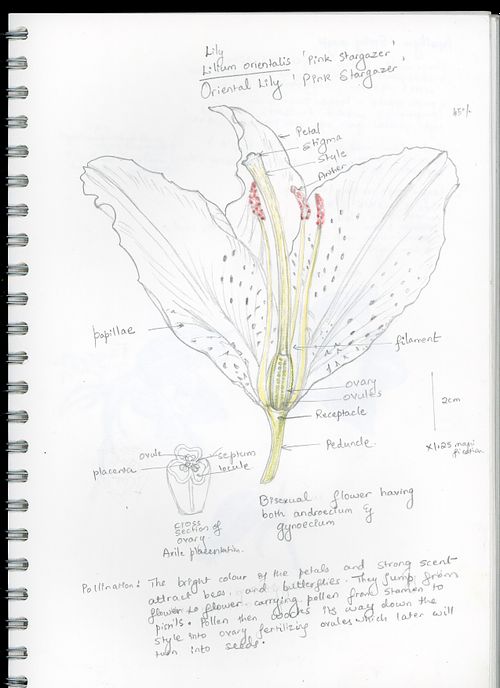 Lily
Lilium orientalis 'Pink Stargazer'
Oriental Lily 'Pink Stargazer'
Petal
Stigma
Style
Anther
papillae
filament
ovary
ovules
2cm
Receptacle
Peduncle.
x1.25 magni
fication
ovule
septum
placenta
locule
cross
section of
ovary.
Axile placentation.
Bisexual flower having
both androecium &
gynoecium
Pollination: The bright colour of the petals and strong scent
attract bees and butterflies. They jump from
flower to flower carrying pollen from stamen to
pistils. Pollen then its way down the
style into ovary fertilizing ovules which later will
turn into seeds.